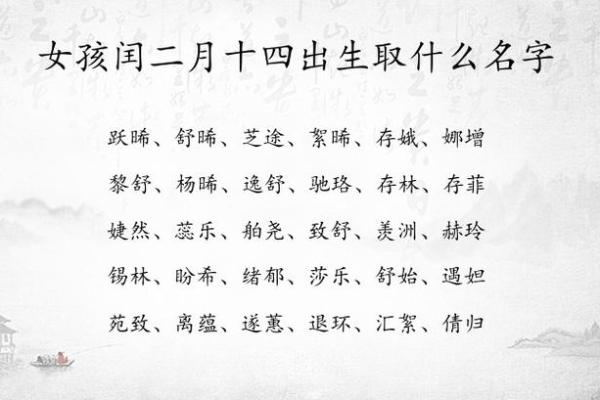 女孩闰二月十四出生取什么名字
跃晞、舒晞、芝途、絮晞、存娥、娜增
黎舒、杨晞、逸舒、驰珞、存林、存菲
婕然、蕊乐、舶尧、致舒、羡洲、赫玲
锡林、盼希、绪郁、莎乐、舒始、遇妲
苑致、离蕴、遂蕙、退环、汇絮、倩归